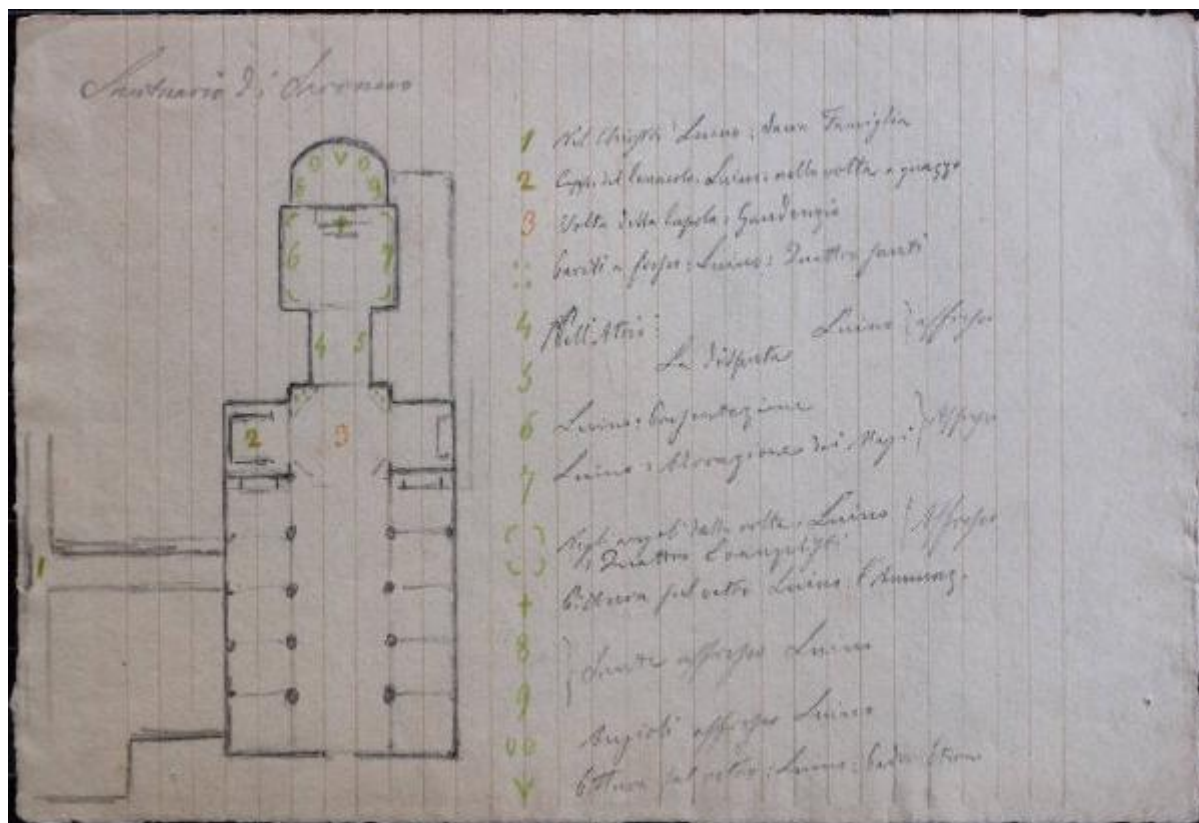 Santuario di Saronno
1 Nel Luino: Sacra Famiglia
2 Capp. del Cenacolo. Luino: nella volta a guazzo
3 Volta della Cupola: Gaudenzio
Luino: Quattro santi
4 Nell'Atrio Luino affresco
5 La Disputa
6 Luino: Presentazione
7 Luino: Adorazione dei Magi Affresco
Negli angoli della volta: Luino Affresco
Quattro Evangelisti
+ Pittura sul vetro Luino l'Annunz.
8
9 Sante affresco Luino
Angioli affresco Luino
V Pittura sul vetro: Luino: Padre Eterno
8 O V O 9
6 + 7
4 5
2 3
1